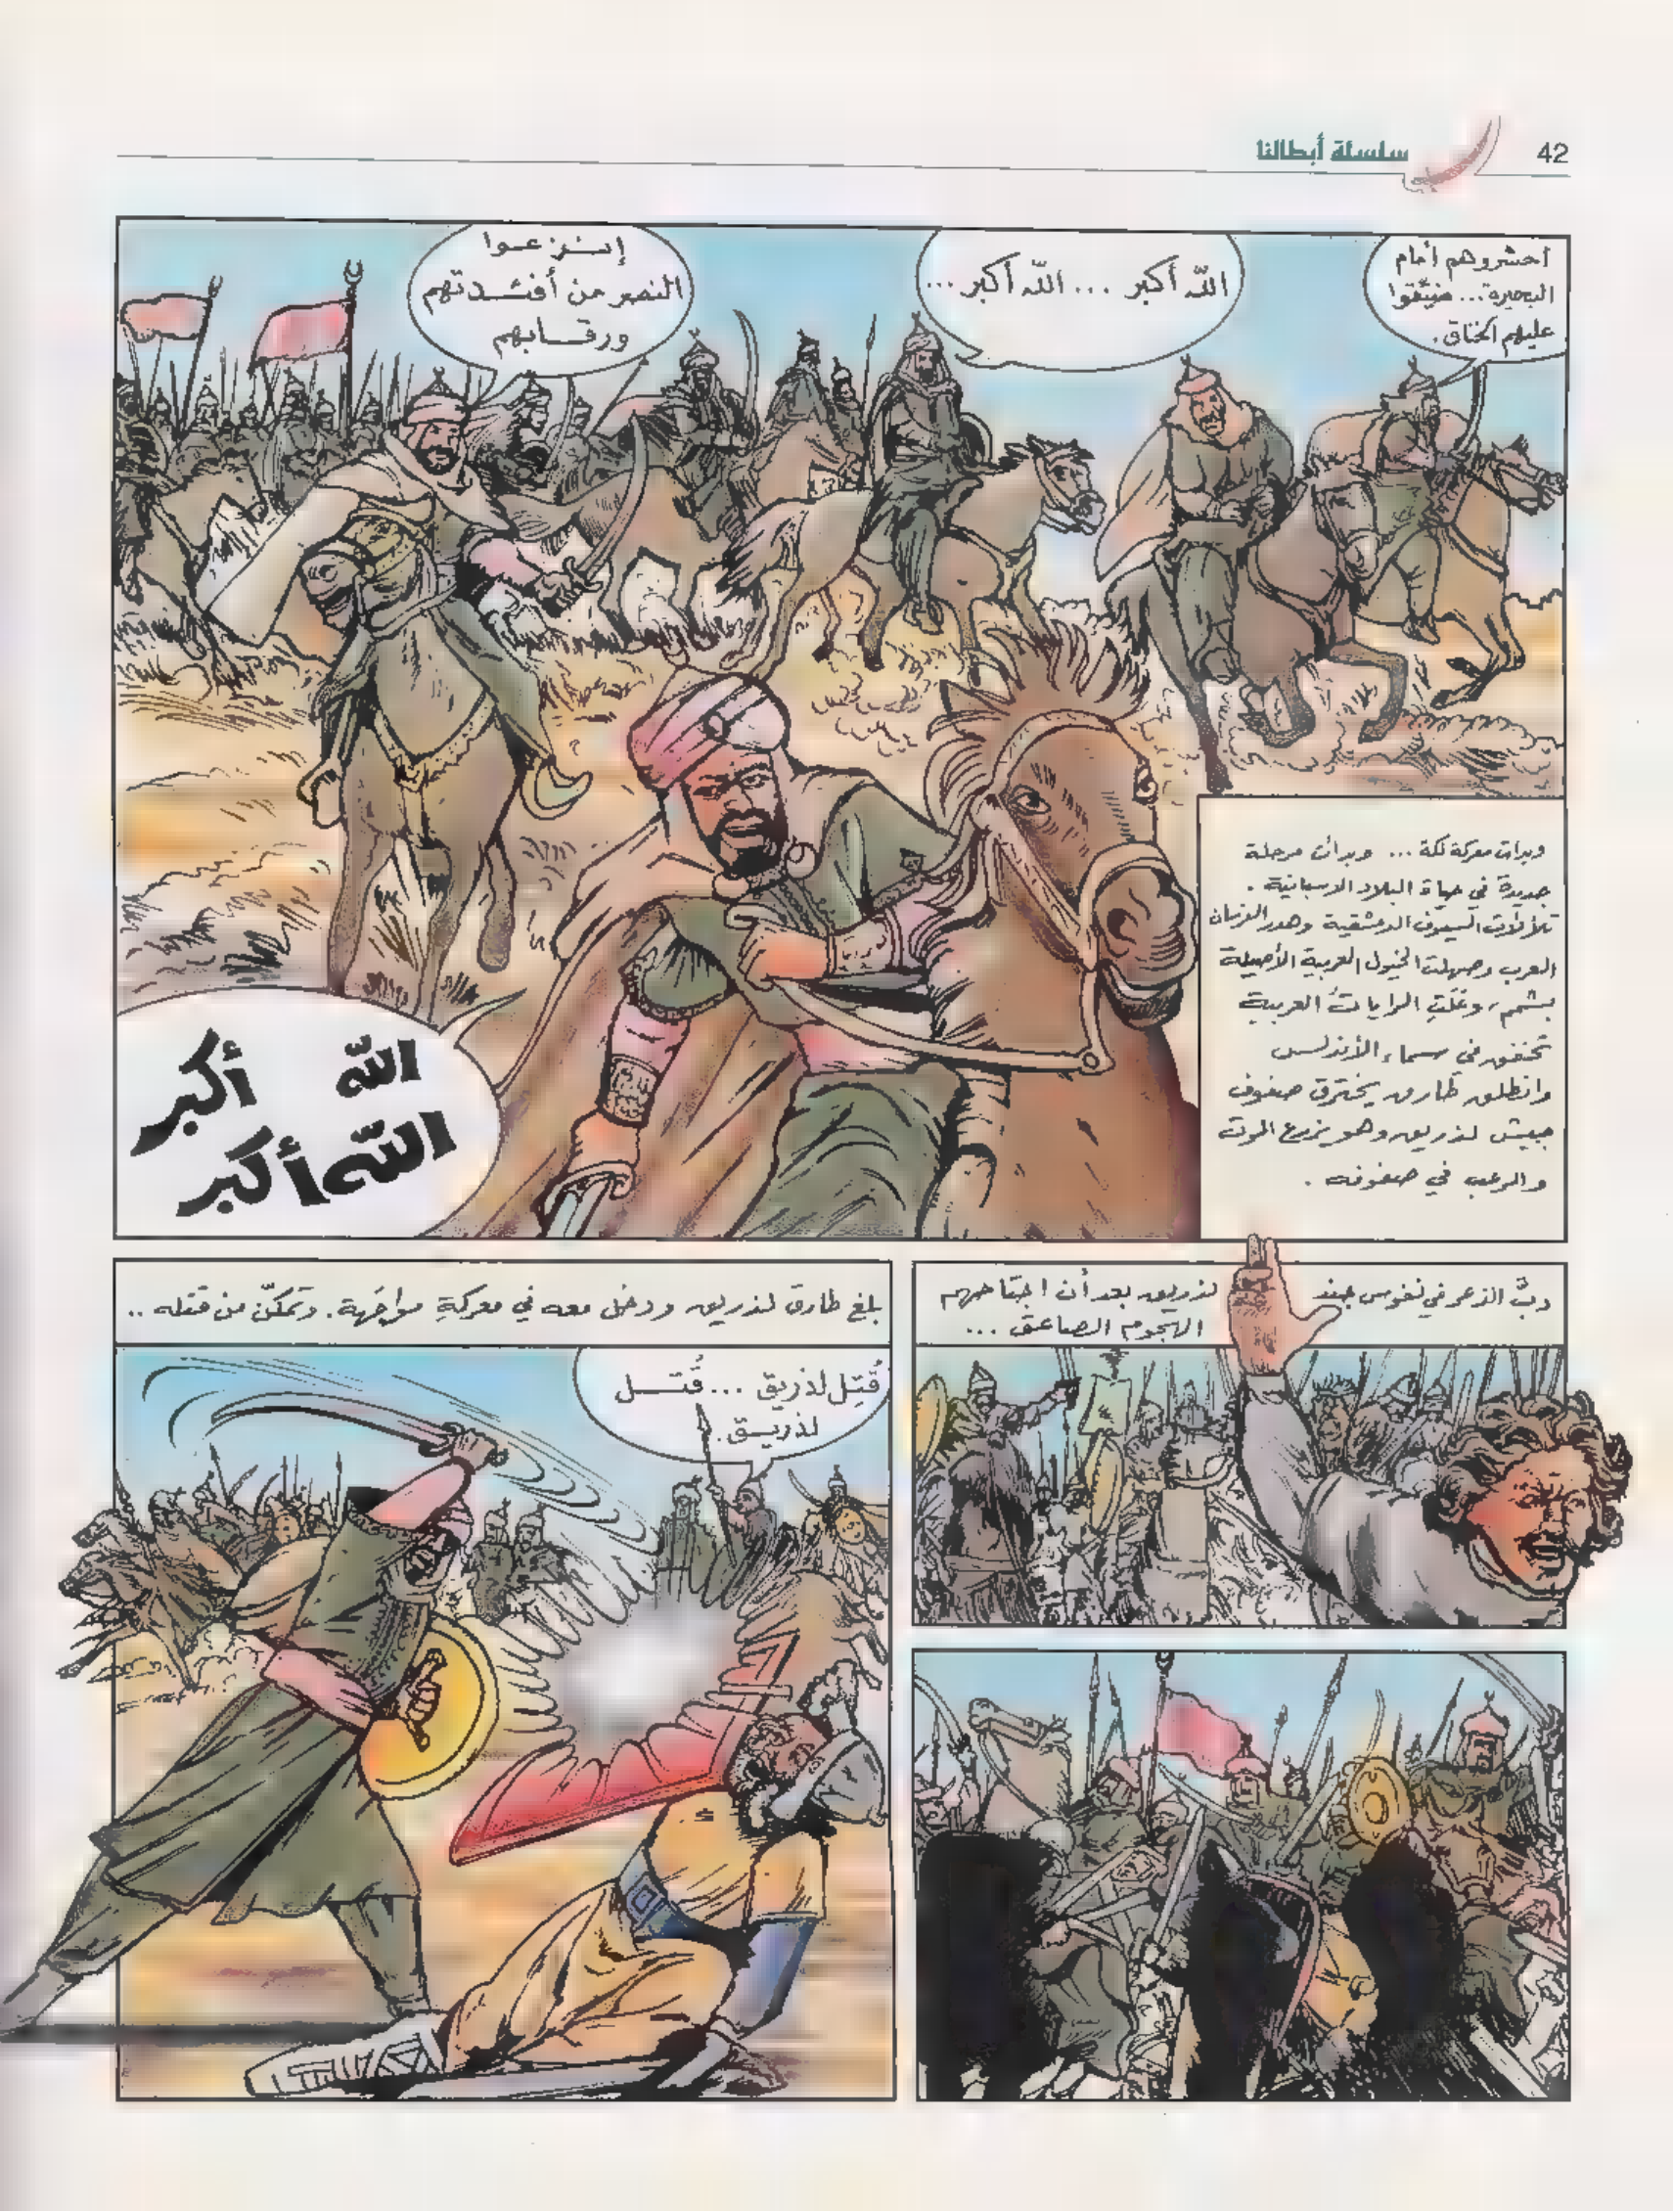 42
سلسلة أبطالنا
أحشروهم أمام
البحيرة... ضيّقوا
عليهم الخناق.
اللّه أكبر ... اللّه أكبر ...
إنـتـزعـوا
النصر من أفئـدتهم
ورقـابهم
وبدأت معركة لكة ... وبدأت مرحلة
جديدة في حياة البلاد الاسبانية .
تلألأت السيوف الدمشقية وهدر الفرسان
العرب وصهلت الخيول العربية الأصيلة
بشمم، وظلّت الرايات العربية
تخفق في سماء الأندلس
وانطلق طارق يخترق صفوف
جيش لذريق وهو يزرع الموت
والرعب في صفوفه .
اللّه أكبر
اللّه أكبر
دبّ الذعر في نفوس جند لذريق بعد أن اجتاحهم
الهجوم الصاعق ...
بلغ طارق لذريق ودخل معه في معركةٍ مواجَهة. وتمكّن من قتله ..
قُتِل لذريق ... قُتـل
لذريـق.